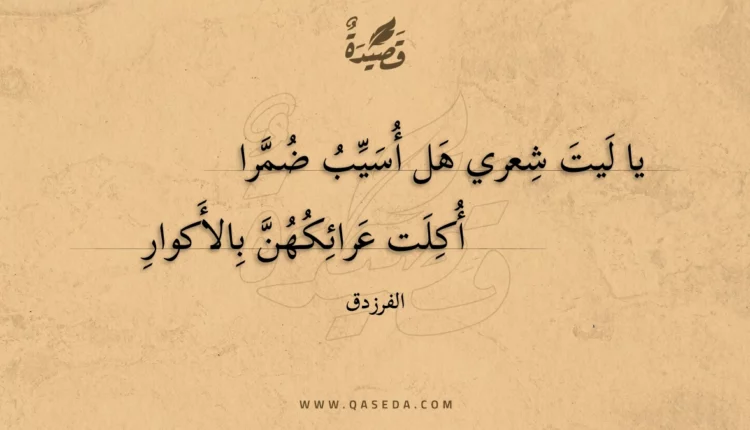 قَصِيْدَةٌ
يا لَيتَ شِعري هَل أُسَيِّبُ ضُمَّرا
أُكِلَت عَرائِكُهُنَّ بِالأَكوارِ
الفرزدق
WWW.QASEDA.COM